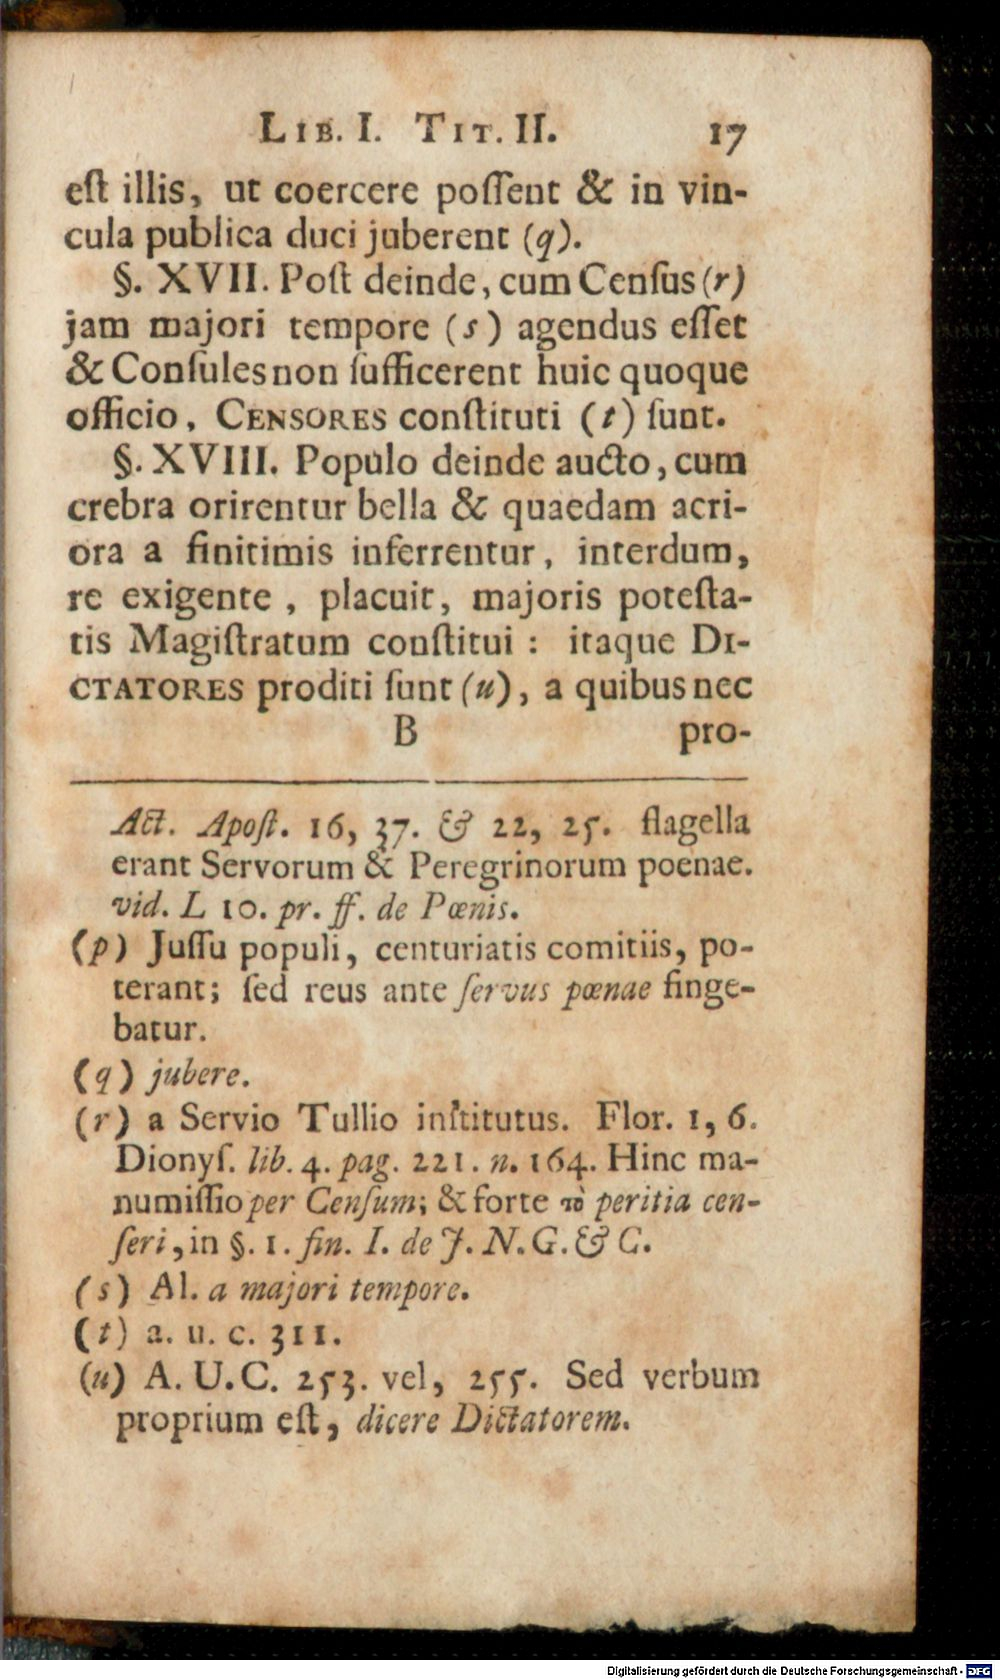 LIB. I. TIT. II. 17
eſt illis, ut coercere poſſent & in vin-
cula publica duci juberent (q).
§. XVII. Poſt deinde, cum Cenſus (r)
jam majori tempore (s) agendus eſſet
& Conſules non ſufficerent huic quoque
officio, CENSORES conſtituti (t) ſunt.
§. XVIII. Populo deinde aucto, cum
crebra orirentur bella & quaedam acri-
ora a finitimis inferrentur, interdum,
re exigente, placuit, majoris poteſta-
tis Magiſtratum conſtitui: itaque DI-
CTATORES proditi ſunt (u), a quibus nec
B pro-
Act. Apoſt. 16, 37. & 22, 25. flagella
erant Servorum & Peregrinorum poenae.
vid. L 10. pr. ff. de Pœnis.
(p) Juſſu populi, centuriatis comitiis, po-
terant; ſed reus ante ſervus pœnae finge-
batur.
(q) jubere.
(r) a Servio Tullio inſtitutus. Flor. 1, 6.
Dionyſ. lib. 4. pag. 221. n. 164. Hinc ma-
numiſſio per Cenſum; & forte τὸ peritia cen-
ſeri, in §. 1. fin. I. de J. N. G. & C.
(s) Al. a majori tempore.
(t) a. u. c. 311.
(u) A. U. C. 253. vel, 255. Sed verbum
proprium eſt, dicere Dictatorem.
Digitalisierung gefördert durch die Deutsche Forschungsgemeinschaft - DFG